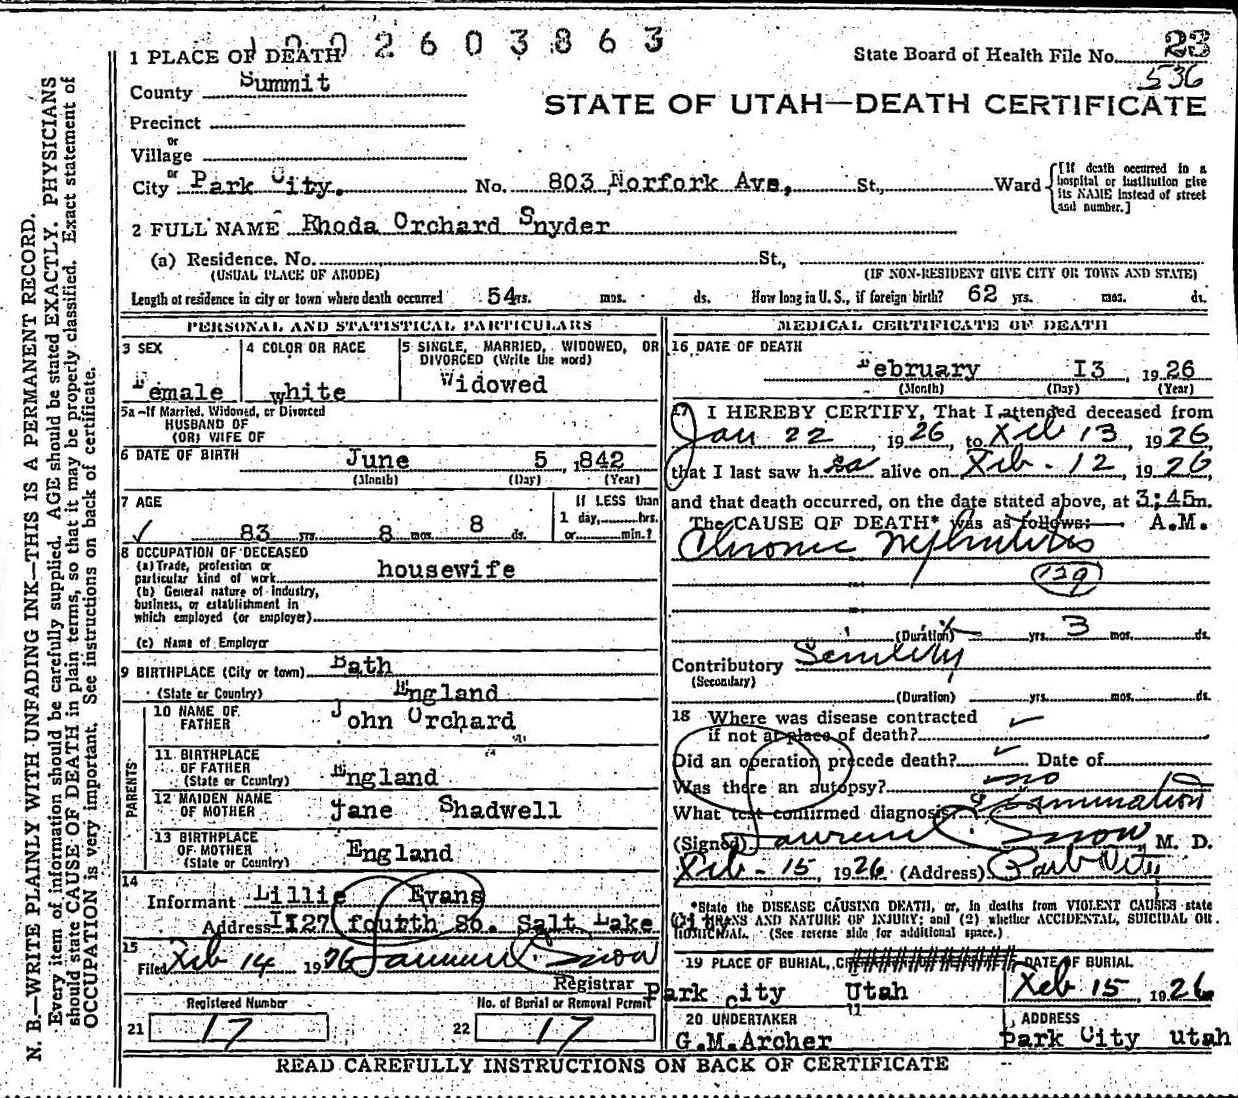 1002603863
1 PLACE OF DEATH
State Board of Health File No. 23
536
County Summit
STATE OF UTAH—DEATH CERTIFICATE
Precinct
or
Village
or
City Park City. No. 803 Norfork Ave, St., Ward
[If death occurred in a hospital or institution give its NAME instead of street and number.]
2 FULL NAME Rhoda Orchard Snyder
(a) Residence. No. St.,
(USUAL PLACE OF ABODE) (IF NON-RESIDENT GIVE CITY OR TOWN AND STATE)
Length of residence in city or town where death occurred 54 yrs. mos. ds. How long in U. S., if foreign birth? 62 yrs. mos. ds.
PERSONAL AND STATISTICAL PARTICULARS
3 SEX
Female
4 COLOR OR RACE
white
5 SINGLE, MARRIED, WIDOWED, OR DIVORCED (Write the word)
Widowed
5a—If Married, Widowed, or Divorced
HUSBAND OF
(OR) WIFE OF
6 DATE OF BIRTH June 5 ,1842
(Month) (Day) (Year)
7 AGE
83 yrs. 8 mos. 8 ds.
If LESS than
1 day,........hrs.
or........min.?
8 OCCUPATION OF DECEASED
(a) Trade, profession or
particular kind of work housewife
(b) General nature of industry,
business, or establishment in
which employed (or employer)
(c) Name of Employer
9 BIRTHPLACE (City or town) Bath
(State or Country) England
PARENTS
10 NAME OF FATHER John Orchard
11 BIRTHPLACE OF FATHER (State or Country) England
12 MAIDEN NAME OF MOTHER Jane Shadwell
13 BIRTHPLACE OF MOTHER (State or Country) England
14
Informant Lillie Evans
Address II27 fourth So. Salt Lake City
15
Filed Feb 14 1926 Laurence C. Snow
Registrar
Registered Number
21 17
No. of Burial or Removal Permit
22 17
MEDICAL CERTIFICATE OF DEATH
16 DATE OF DEATH
February I3 , 1926
(Month) (Day) (Year)
17 I HEREBY CERTIFY, That I attended deceased from
Jan 22 , 1926, to Feb 13, 1926,
that I last saw h er alive on Feb - 12, 1926,
and that death occurred, on the date stated above, at 3:45 m.
The CAUSE OF DEATH* was as follows: A.M.
Chronic Nephritis
129
(Duration) yrs. 3 mos. ds.
Contributory Senility
(Secondary)
(Duration) yrs. mos. ds.
18 Where was disease contracted
if not at place of death?
Did an operation precede death? Date of
Was there an autopsy? no
What test confirmed diagnosis? Examination
(Signed) Laurence C. Snow M. D.
Feb - 15, 1926 (Address) Park City
*State the DISEASE CAUSING DEATH, or, in deaths from VIOLENT CAUSES state
MEANS AND NATURE OF INJURY; and (2) whether ACCIDENTAL, SUICIDAL OR
HOMICIDAL. (See reverse side for additional space.)
19 PLACE OF BURIAL, DATE OF BURIAL
Park City Utah Feb 15, 1926
20 UNDERTAKER ADDRESS
G.M.Archer Park City utah
READ CAREFULLY INSTRUCTIONS ON BACK OF CERTIFICATE
N. B.—WRITE PLAINLY WITH UNFADING INK—THIS IS A PERMANENT RECORD.
Every item of information should be carefully supplied. AGE should be stated EXACTLY. PHYSICIANS
should state CAUSE OF DEATH in plain terms, so that it may be properly classified. Exact statement of
OCCUPATION is very important. See instructions on back of certificate.